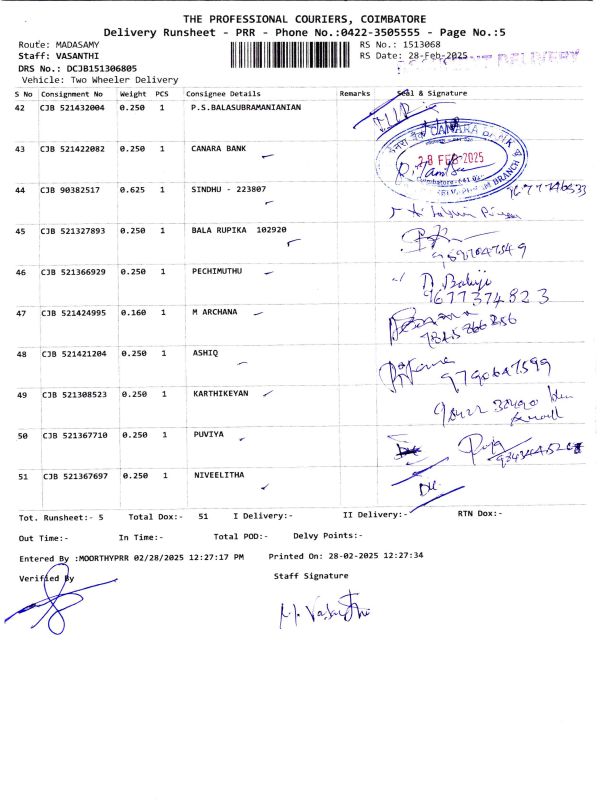 THE PROFESSIONAL COURIERS, COIMBATORE
Delivery Runsheet - PRR - Phone No.:0422-3505555 - Page No.:5
Route: MADASAMY RS No.: 1513068
Staff: VASANTHI RS Date: 28-Feb-2025
DELIVERY
DRS No.: DCJB151306805
Vehicle: Two Wheeler Delivery
S No Consignment No Weight PCS Consignee Details Remarks Seal & Signature
42 CJB 521432004 0.250 1 P.S.BALASUBRAMANIANIAN
43 CJB 521422082 0.250 1 CANARA BANK
CANARA BANK
28 FEB 2025
44 CJB 90382517 0.625 1 SINDHU - 223807
45 CJB 521327893 0.250 1 BALA RUPIKA 102920
46 CJB 521366929 0.250 1 PECHIMUTHU
9677374823
47 CJB 521424995 0.160 1 M ARCHANA
48 CJB 521421204 0.250 1 ASHIQ
9790647599
49 CJB 521308523 0.250 1 KARTHIKEYAN
50 CJB 521367710 0.250 1 PUVIYA
51 CJB 521367697 0.250 1 NIVEELITHA
Tot. Runsheet:- 5 Total Dox:- 51 I Delivery:- II Delivery:- RTN Dox:-
Out Time:- In Time:- Total POD:- Delvy Points:-
Entered By :MOORTHYPRR 02/28/2025 12:27:17 PM Printed On: 28-02-2025 12:27:34
Verified By Staff Signature
M. Vasanthi